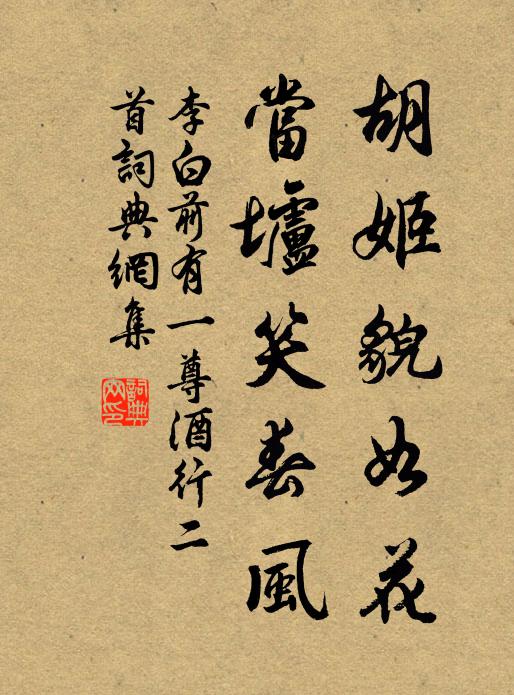 胡姬貌如花
當壚笑春風
李白前有一尊酒行二
首詞典網集
詞典網印